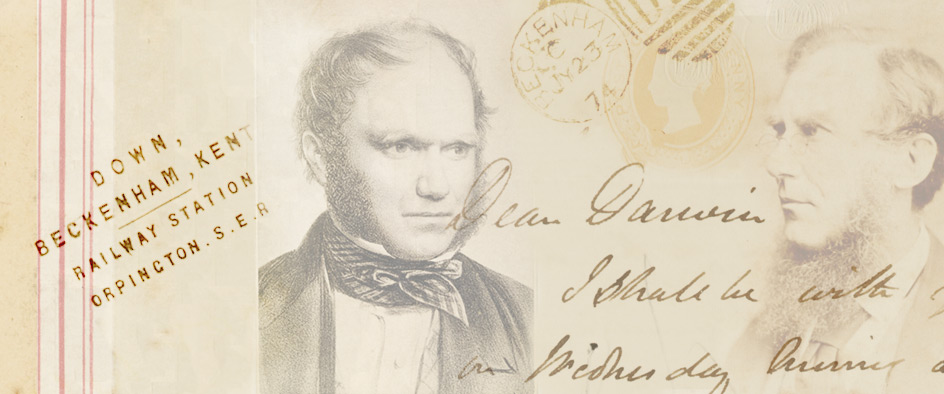 DOWN,
BECKENHAM, KENT
RAILWAY STATION
ORPINGTON. S.E.R
BECKENHAM
C
JY 23
74
Dear Darwin
I shall be with
on Wednesday